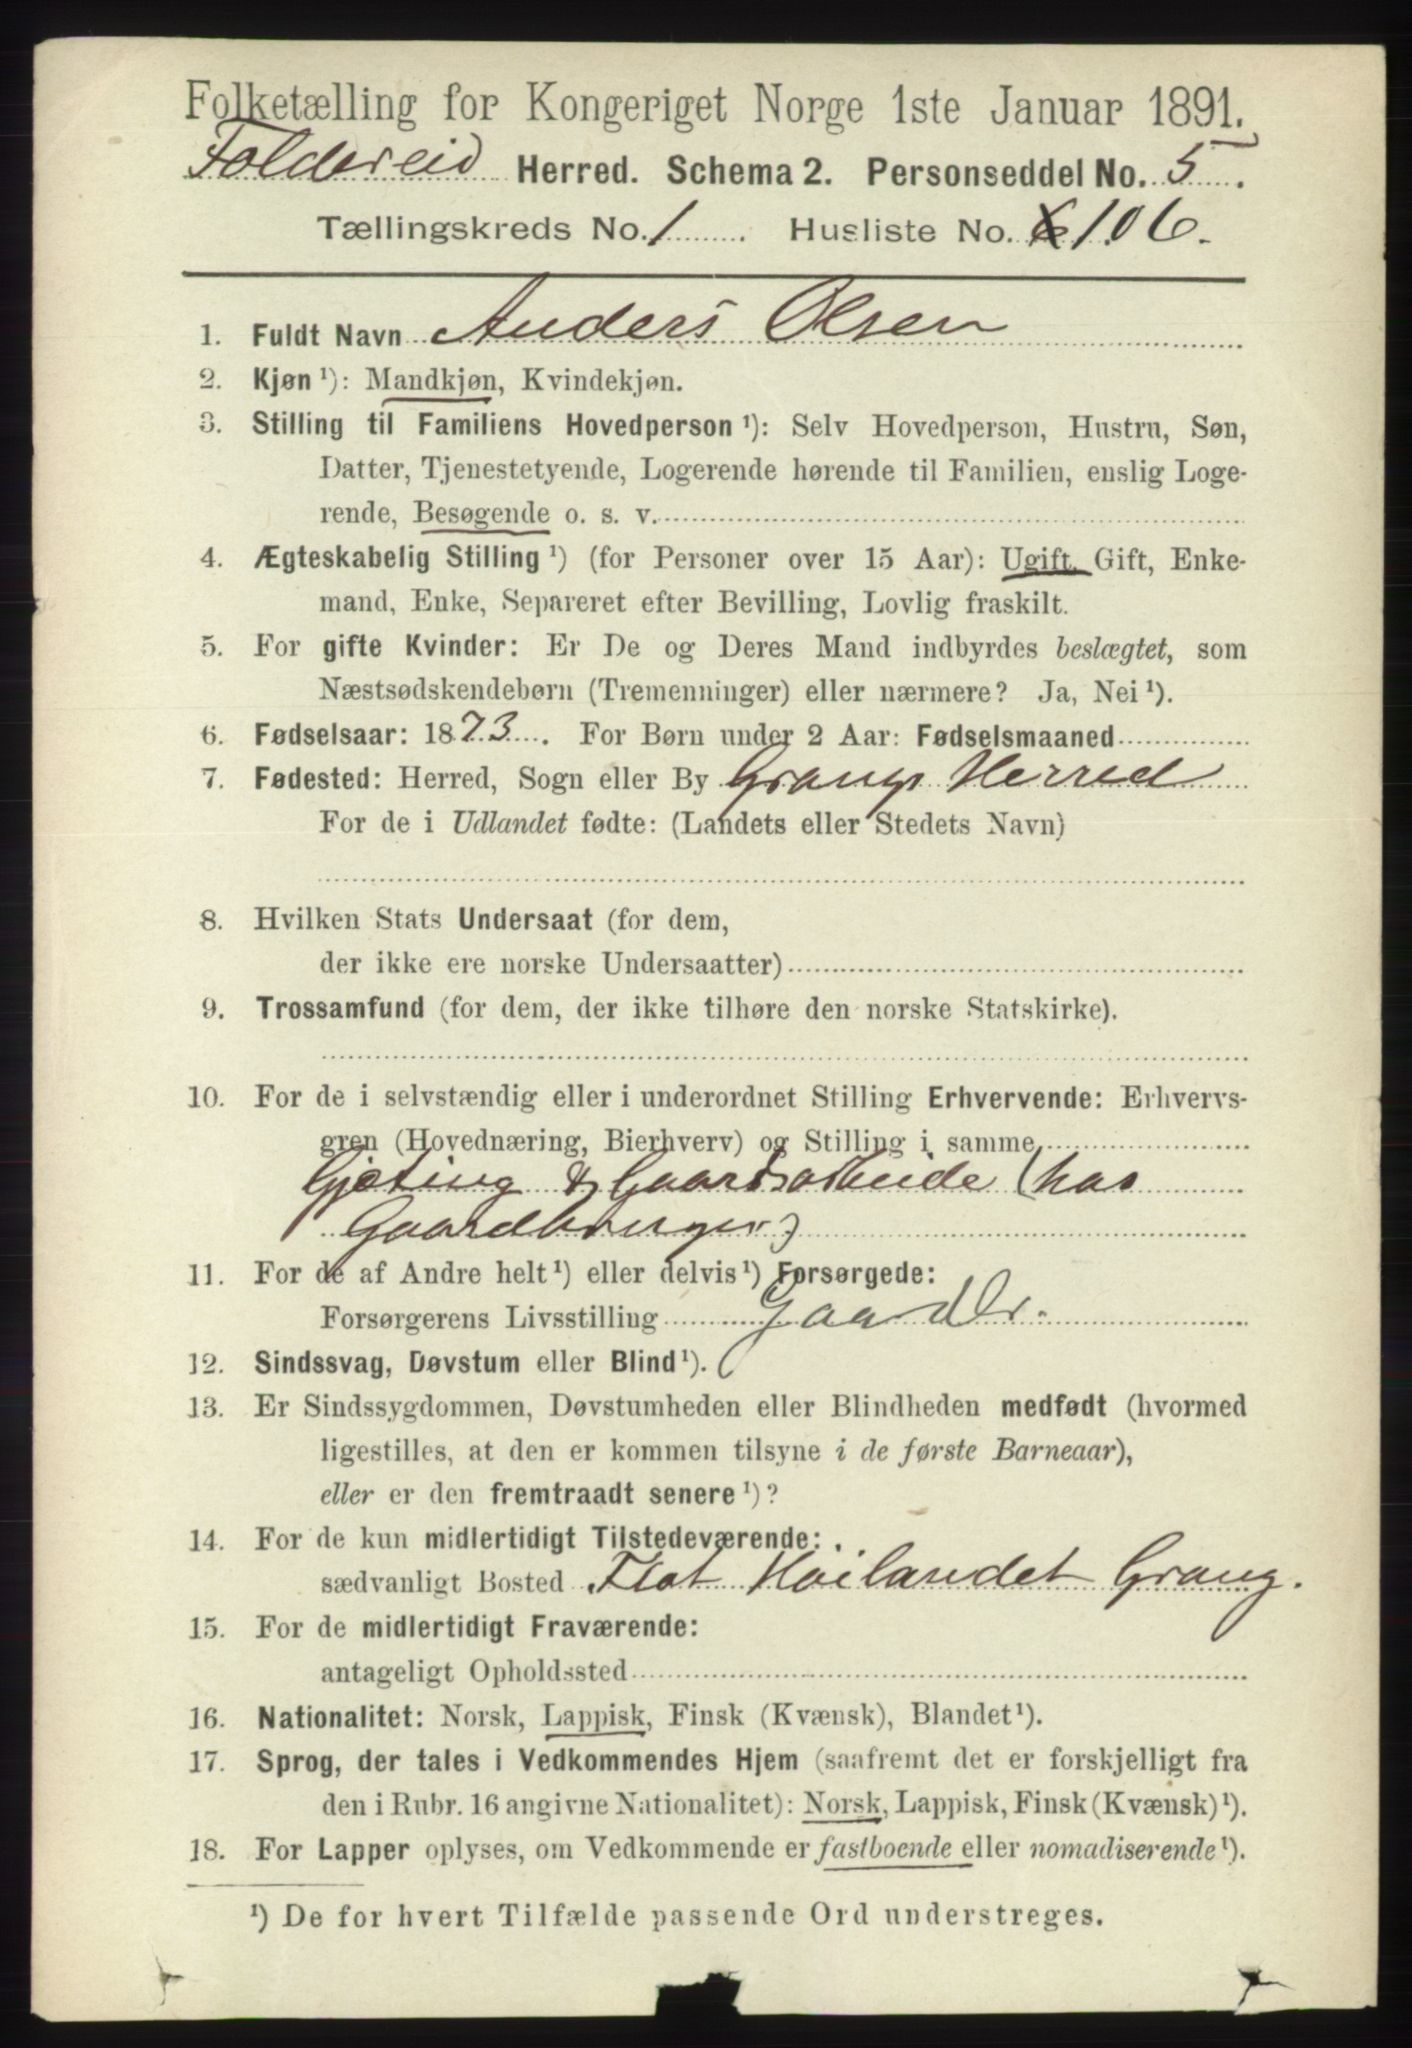 Folketælling for Kongeriget Norge 1ste Januar 1891.
Foldereid Herred. Schema 2. Personseddel No. 5.
Tællingskreds No. 1. Husliste No. 6 106.
1. Fuldt Navn Anders Olsen
2. Kjøn ¹): Mandkjøn, Kvindekjøn.
3. Stilling til Familiens Hovedperson ¹): Selv Hovedperson, Hustru, Søn,
Datter, Tjenestetyende, Logerende hørende til Familien, enslig Loge-
rende, Besøgende o. s. v.
4. Ægteskabelig Stilling ¹) (for Personer over 15 Aar): Ugift, Gift, Enke-
mand, Enke, Separeret efter Bevilling, Lovlig fraskilt.
5. For gifte Kvinder: Er De og Deres Mand indbyrdes beslægtet, som
Næstsødskendebørn (Tremenninger) eller nærmere? Ja, Nei ¹).
6. Fødselsaar: 1873. For Børn under 2 Aar: Fødselsmaaned
7. Fødested: Herred, Sogn eller By Grongs Herred
For de i Udlandet fødte: (Landets eller Stedets Navn)
8. Hvilken Stats Undersaat (for dem,
der ikke ere norske Undersaatter)
9. Trossamfund (for dem, der ikke tilhøre den norske Statskirke).
10. For de i selvstændig eller i underordnet Stilling Erhvervende: Erhvervs-
gren (Hovednæring, Bierhverv) og Stilling i samme
Gjæting & Gaardsarbeide (hos
Gaardbruger)
11. For de af Andre helt ¹) eller delvis ¹) Forsørgede:
Forsørgerens Livsstilling Gaardbr.
12. Sindssvag, Døvstum eller Blind ¹).
13. Er Sindssygdommen, Døvstumheden eller Blindheden medfødt (hvormed
ligestilles, at den er kommen tilsyne i de første Barneaar),
eller er den fremtraadt senere ¹)?
14. For de kun midlertidigt Tilstedeværende:
sædvanligt Bosted Flot Høilandet Grong.
15. For de midlertidigt Fraværende:
antageligt Opholdssted
16. Nationalitet: Norsk, Lappisk, Finsk (Kvænsk), Blandet ¹).
17. Sprog, der tales i Vedkommendes Hjem (saafremt det er forskjelligt fra
den i Rubr. 16 angivne Nationalitet): Norsk, Lappisk, Finsk (Kvænsk) ¹).
18. For Lapper oplyses, om Vedkommende er fastboende eller nomadiserende ¹).
¹) De for hvert Tilfælde passende Ord understreges.